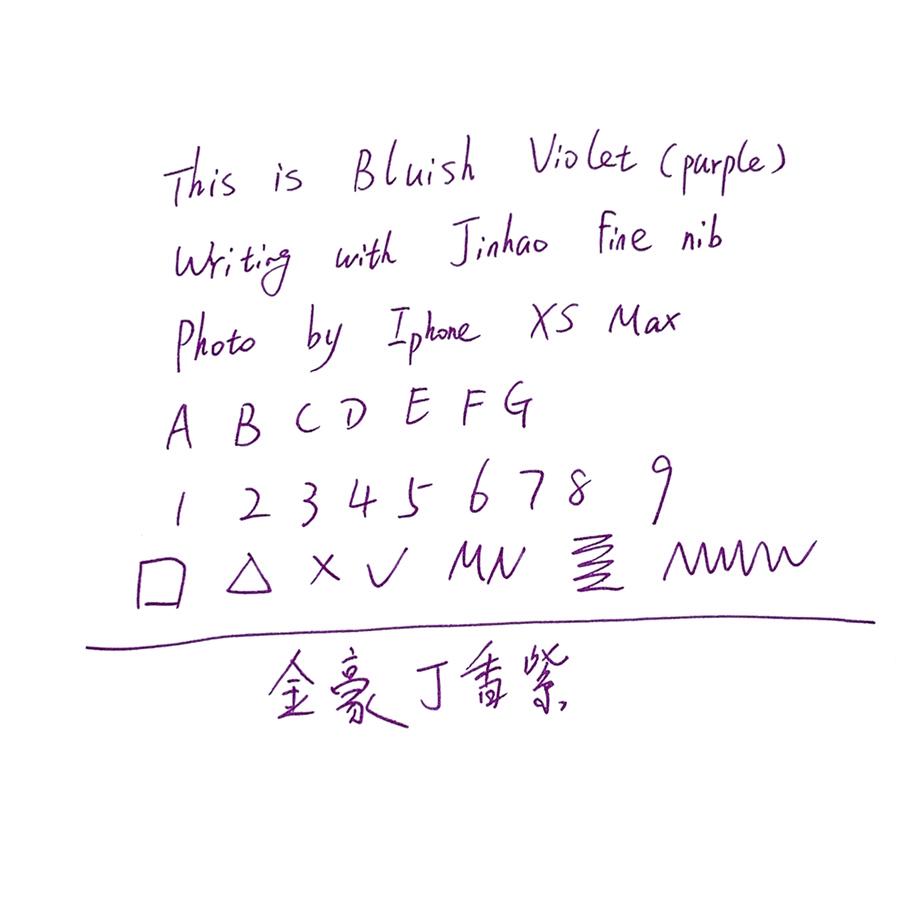 This is Bluish Violet (purple)
Writing with Jinhao Fine nib
Photo by Iphone XS Max
A B C D E F G
1 2 3 4 5 6 7 8 9
□ △ × ✓ MN
金豪丁香紫